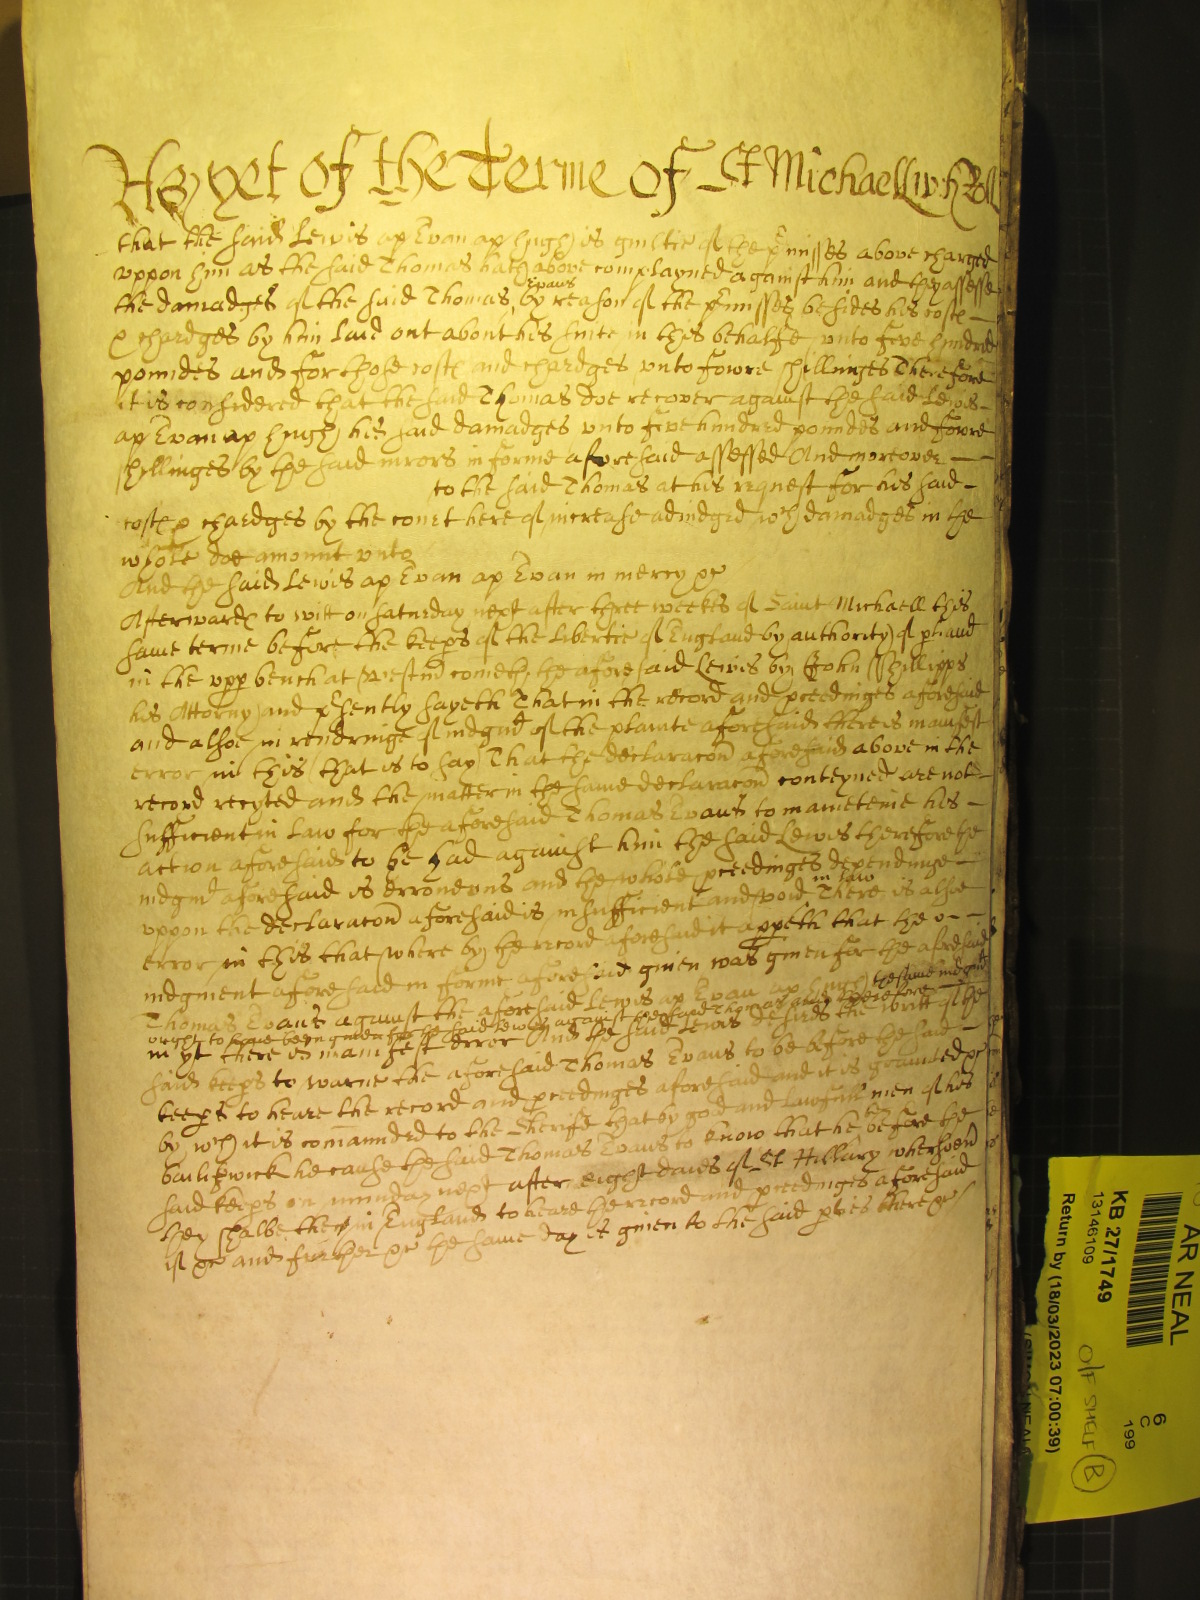 As yet of the Terme of St Michaell wth Roll
that the said Lewis ap Evan ap Hugh is guiltie of the pmisses above charged
uppon him as the said Thomas hath above complayned against him and they assesse
the damadges of the said Thomas Evans by reason of the pmisses besides his costs
& chardges by him laid out about his suite in this behalfe unto five hundred
poundes and for those costs and chardges unto fowre shillinges Therefore
it is considered that the said Thomas doe recover against the said Lewis
ap Evan ap Hugh his said damadges unto five hundred poundes and fowre
shillinges by the said iurors in forme aforesaid assessed And moreover
to the said Thomas at his request for his said
costs & chardges by the court here of increase adiudged wch damadges in the
whole doe amount unto
And the said Lewis ap Evan ap Evan in mercy &c
Afterwards to witt on Saturday next after three weekes of Saint Michaell this
same terme before the keeps of the libertie of England by authority of pliamt
in the upp bench at Westmr cometh the aforesaid Lewis by John Phillipps
his Attorny and psently sayeth That in the record and pceedinges aforesaid
and alsoe in rendringe of iudgmt of the plainte aforesaid there is manifest
error in this that is to say That the declaracon aforesaid above in the
record recyted and the matter in the same declaracon conteyned are not
sufficient in law for the aforesaid Thomas Evans to mainteine his
action aforesaid to be had against him the said Lewis therefore the
iudgmt aforesaid is erroneous and the whole pceedinges dependinge
uppon the declaracon aforesaid is insufficient and void in law There is alsoe
error in this that where by the record aforesaid it appeth that the
iudgment aforesaid in forme aforesaid given was given for the aforesaid
Thomas Evans against the aforesaid Lewis ap Evan ap Hugh the same iudgmt
ought to have been given for the said Lewis against the said Thomas and therefore
in yt there is manifest error And the said Lewis desires the writt of the
said keeps to warne the aforesaid Thomas Evans to be before the said
keeps to heare the record and pceedinges aforesaid and it is graunted &c
by wch it is comaunded to the Sherife that by good and lawfull men of his
bailiwick he cause the said Thomas Evans to know that he be before the
said keeps on munday next after eight daies of St Hillary whersoevr
they shalbe then in England to heare the record and pceedinges aforesaid
if &c and further &c the same day is given to the said pties there &c
AR NEAL
KB 27/1749
13146109
Return by (18/03/2023 07:00:39)
6
C
199
O/F SHELF B